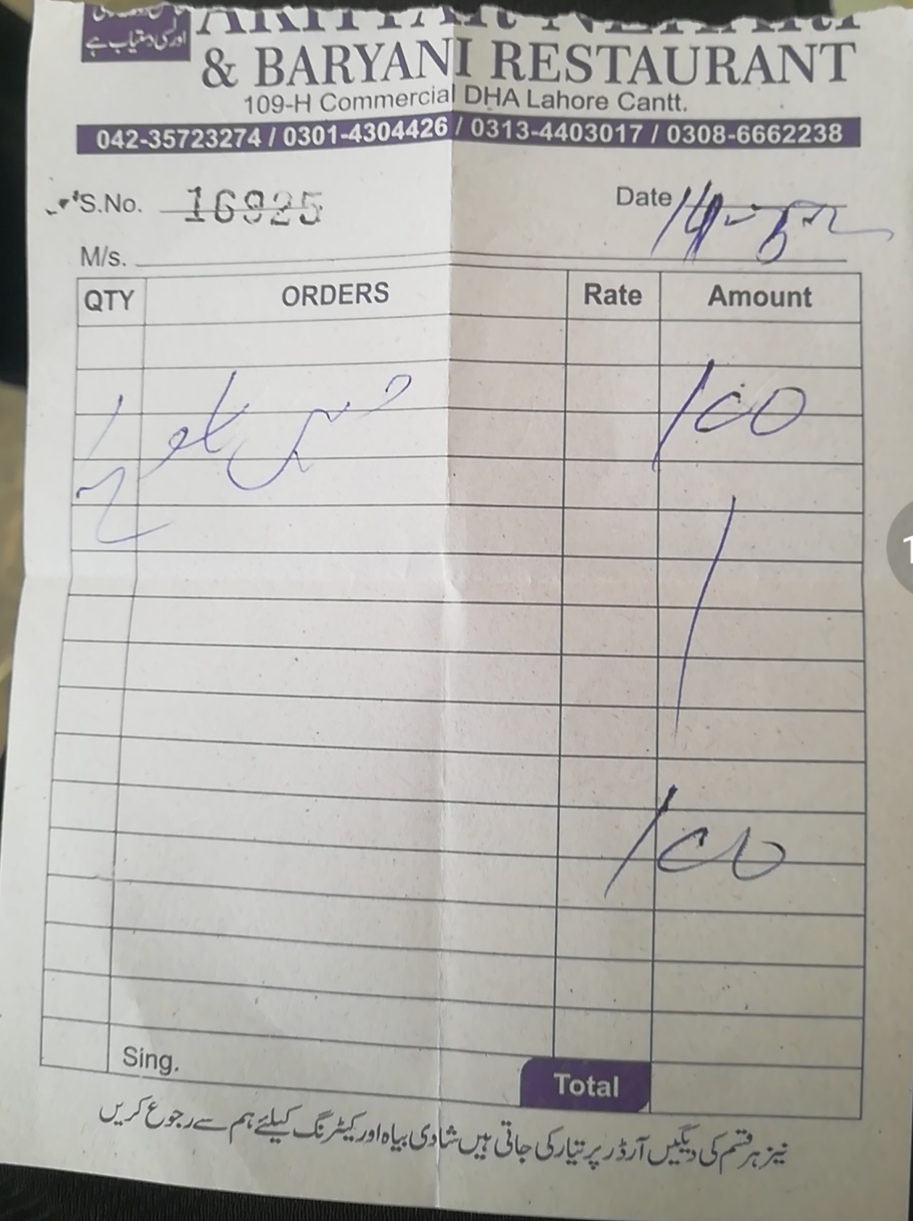 اور لسی دستیاب ہے
& BARYANI RESTAURANT
109-H Commercial DHA Lahore Cantt.
042-35723274 / 0301-4304426 / 0313-4403017 / 0308-6662238
S.No. 16925 Date
M/s.
QTY ORDERS Rate Amount
100
100
Sing. Total
نیز ہر قسم کی دیگیں آرڈر پر تیار کی جاتی ہیں شادی بیاہ اور کیٹرنگ کیلئے ہم سے رجوع کریں